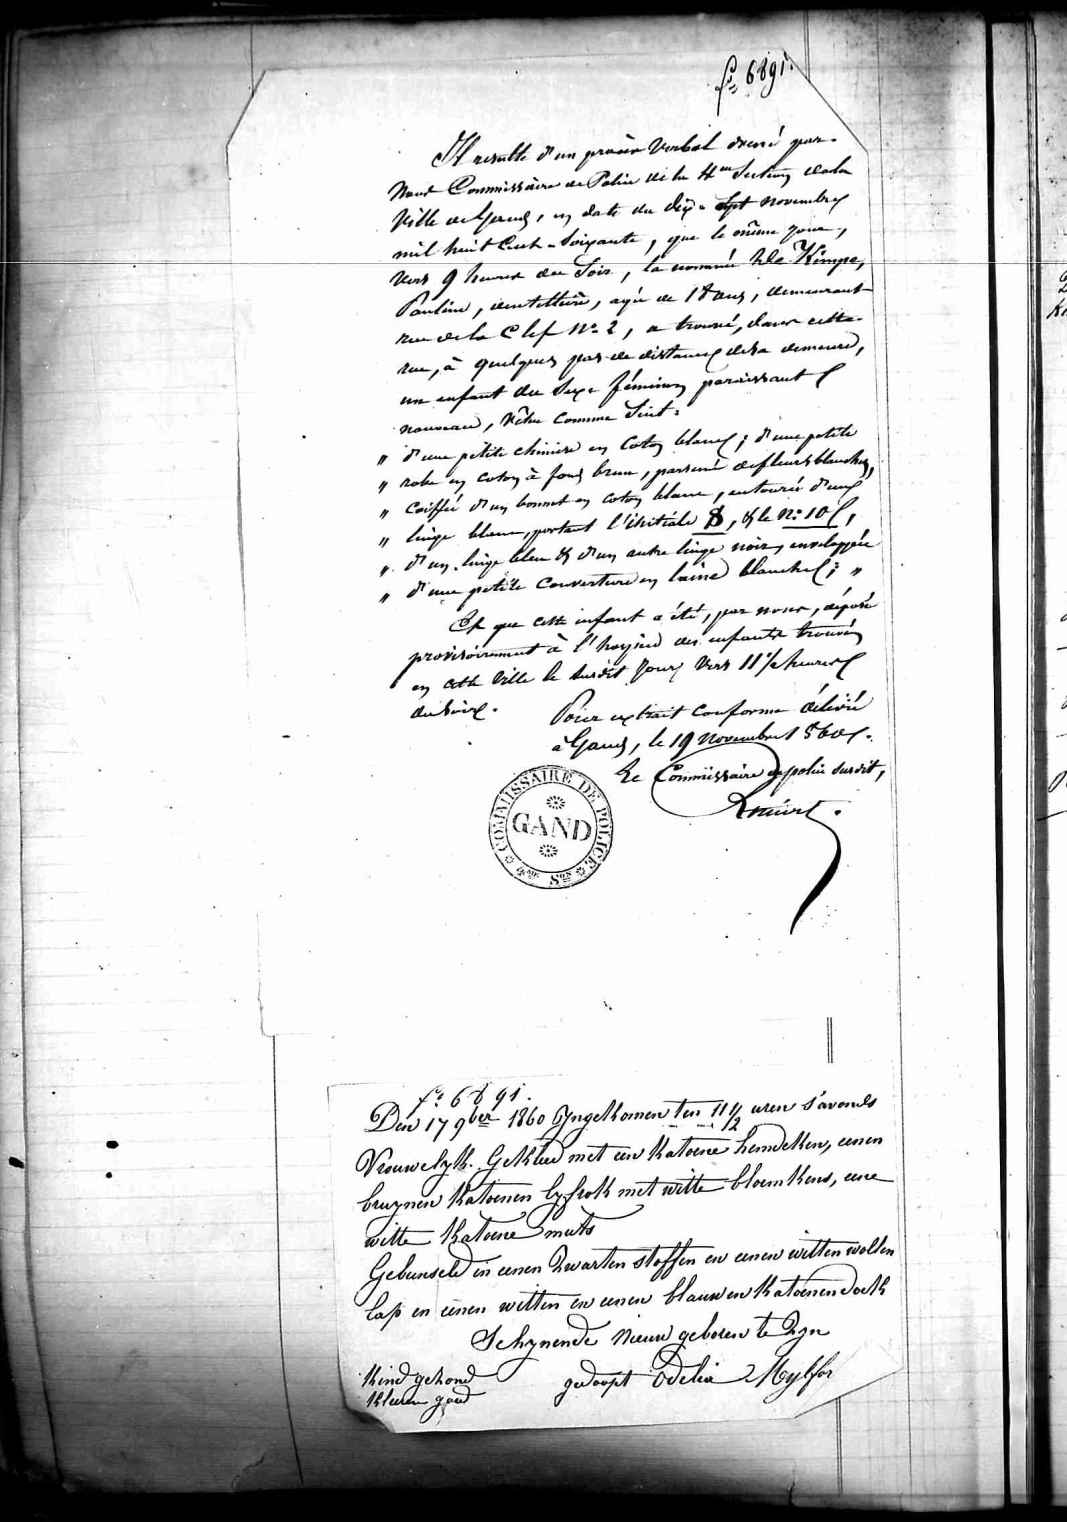 f° 6891.
Il resulte d'un procès verbal dressé par
Nous Commissaire de Police de la 4me Section de la
Ville de Gand, en date du dix-sept novembre
mil huit Cent-Soixante, que le même jour,
vers 9 heures du Soir, la nommée De Kimpe,
Pauline, dentellière, agée de 18 ans, demeurant
rue de la Clef No 2, a trouvé, dans cette
rue, à quelques pas de distance de sa demeure,
un enfant du Sexe féminin paraissant
nouveau, vêtu comme Suit:
" d'une petite chemise en Coton blanc; d'une petite
" robe en coton à fond brun, parsemé de fleurs blanches,
" coiffée d'un bonnet en coton blanc, entourée d'un
" linge blanc, portant l'initiale, & le No 10,
" d'un linge bleu & d'un autre linge noir, enveloppée
" d'une petite Couverture en laine blanche; "
Et que cette enfant a été, par nous, déposée
provisoirement à l'hospice des enfants trouvés
en cette Ville le susdit Jour, vers 11½ heures
du Soir.
Pour extrait conforme délivré
à Gand, le 19 Novembre 1860.
Le Commissaire de police susdit,
COMMISSAIRE DE POLICE
GAND
4me Son
f° 6891.
Den 17 9ber 1860 Ingekomen ten 11½ uren s'avonds
Vrouwelyk. Gekleed met een Katoene hemdeken, eenen
bruynen Katoenen lyfrok met witte bloemkens, eene
witte Katoene muts
Gebunseld in eenen Zwarten stoffen en eenen witten wollen
lap en eenen witten en eenen blauwen Katoenen doek
Schynende nieuw geboren te Zyn
Kind gezond gedoopt Odelia Mylfor
Kleeren goed